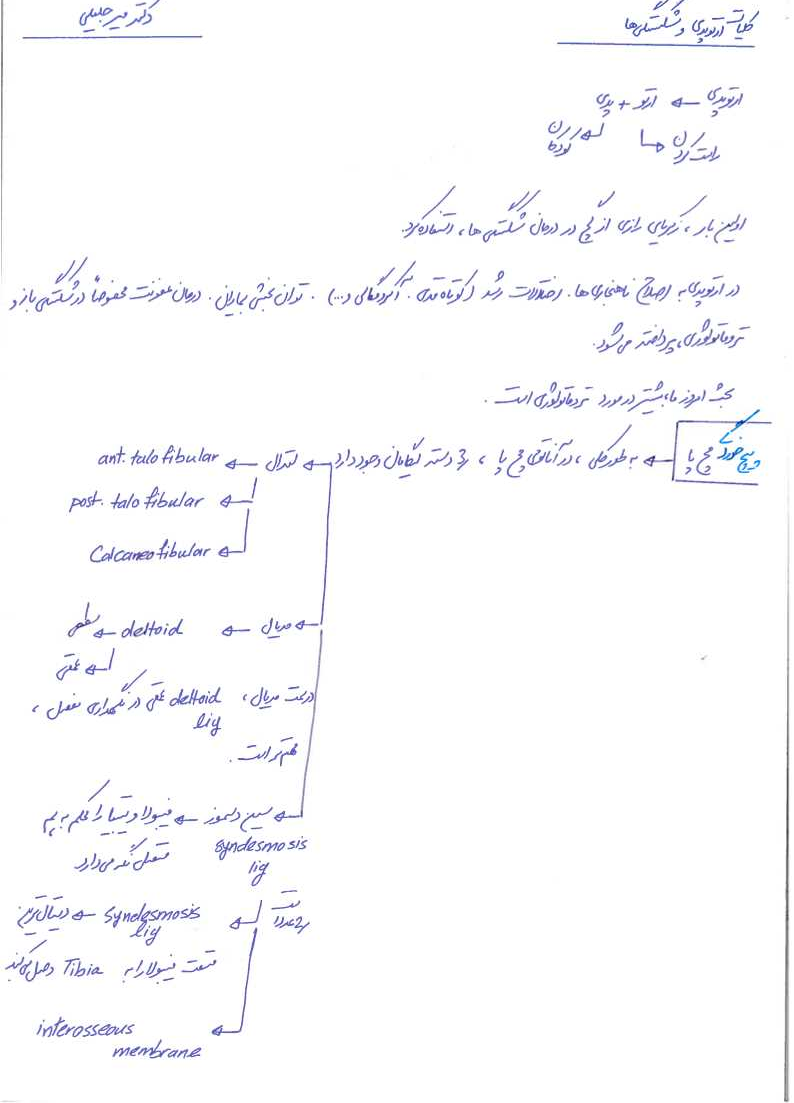 کلیات ارتوپدی و شکستگی‌ها
دکتر میرجلیلی
ارتوپدی ← ارتو + پدی
راست کردن
کودک
اولین بار، زکریای رازی از گچ در درمان شکستگی ها، استفاده کرد.
در ارتوپدی به اصلاح ناهنجاری‌ها، اختلالات رشد (کوتاه قدی، آکندروپلازی و...)، توان بخشی بیماران، درمان عفونت مخصوصاً در شکستگی باز و
تروماتولوژی، پرداخته می‌شود.
بحث امروز ما، بیشتر در مورد تروماتولوژی است.
پیچ خوردگی مچ پا ← به طور کلی، در آناتومی مچ پا، 3 دسته لیگامان وجود دارد
لترال ← ant. talo fibular
post. talo fibular
Calcaneo fibular
مدیال ← deltoid ← سطحی
عمقی
در سمت مدیال، deltoid lig عمقی در نگهداری مفصل،
مهم تر است.
سین دسموز ← فیبولا و تیبیا را محکم به هم
syndesmosis lig
متصل نگه می‌دارد
syndesmosis lig ← دیستال ترین
قسمت فیبولا را به Tibia وصل می‌کند
interosseous
membrane